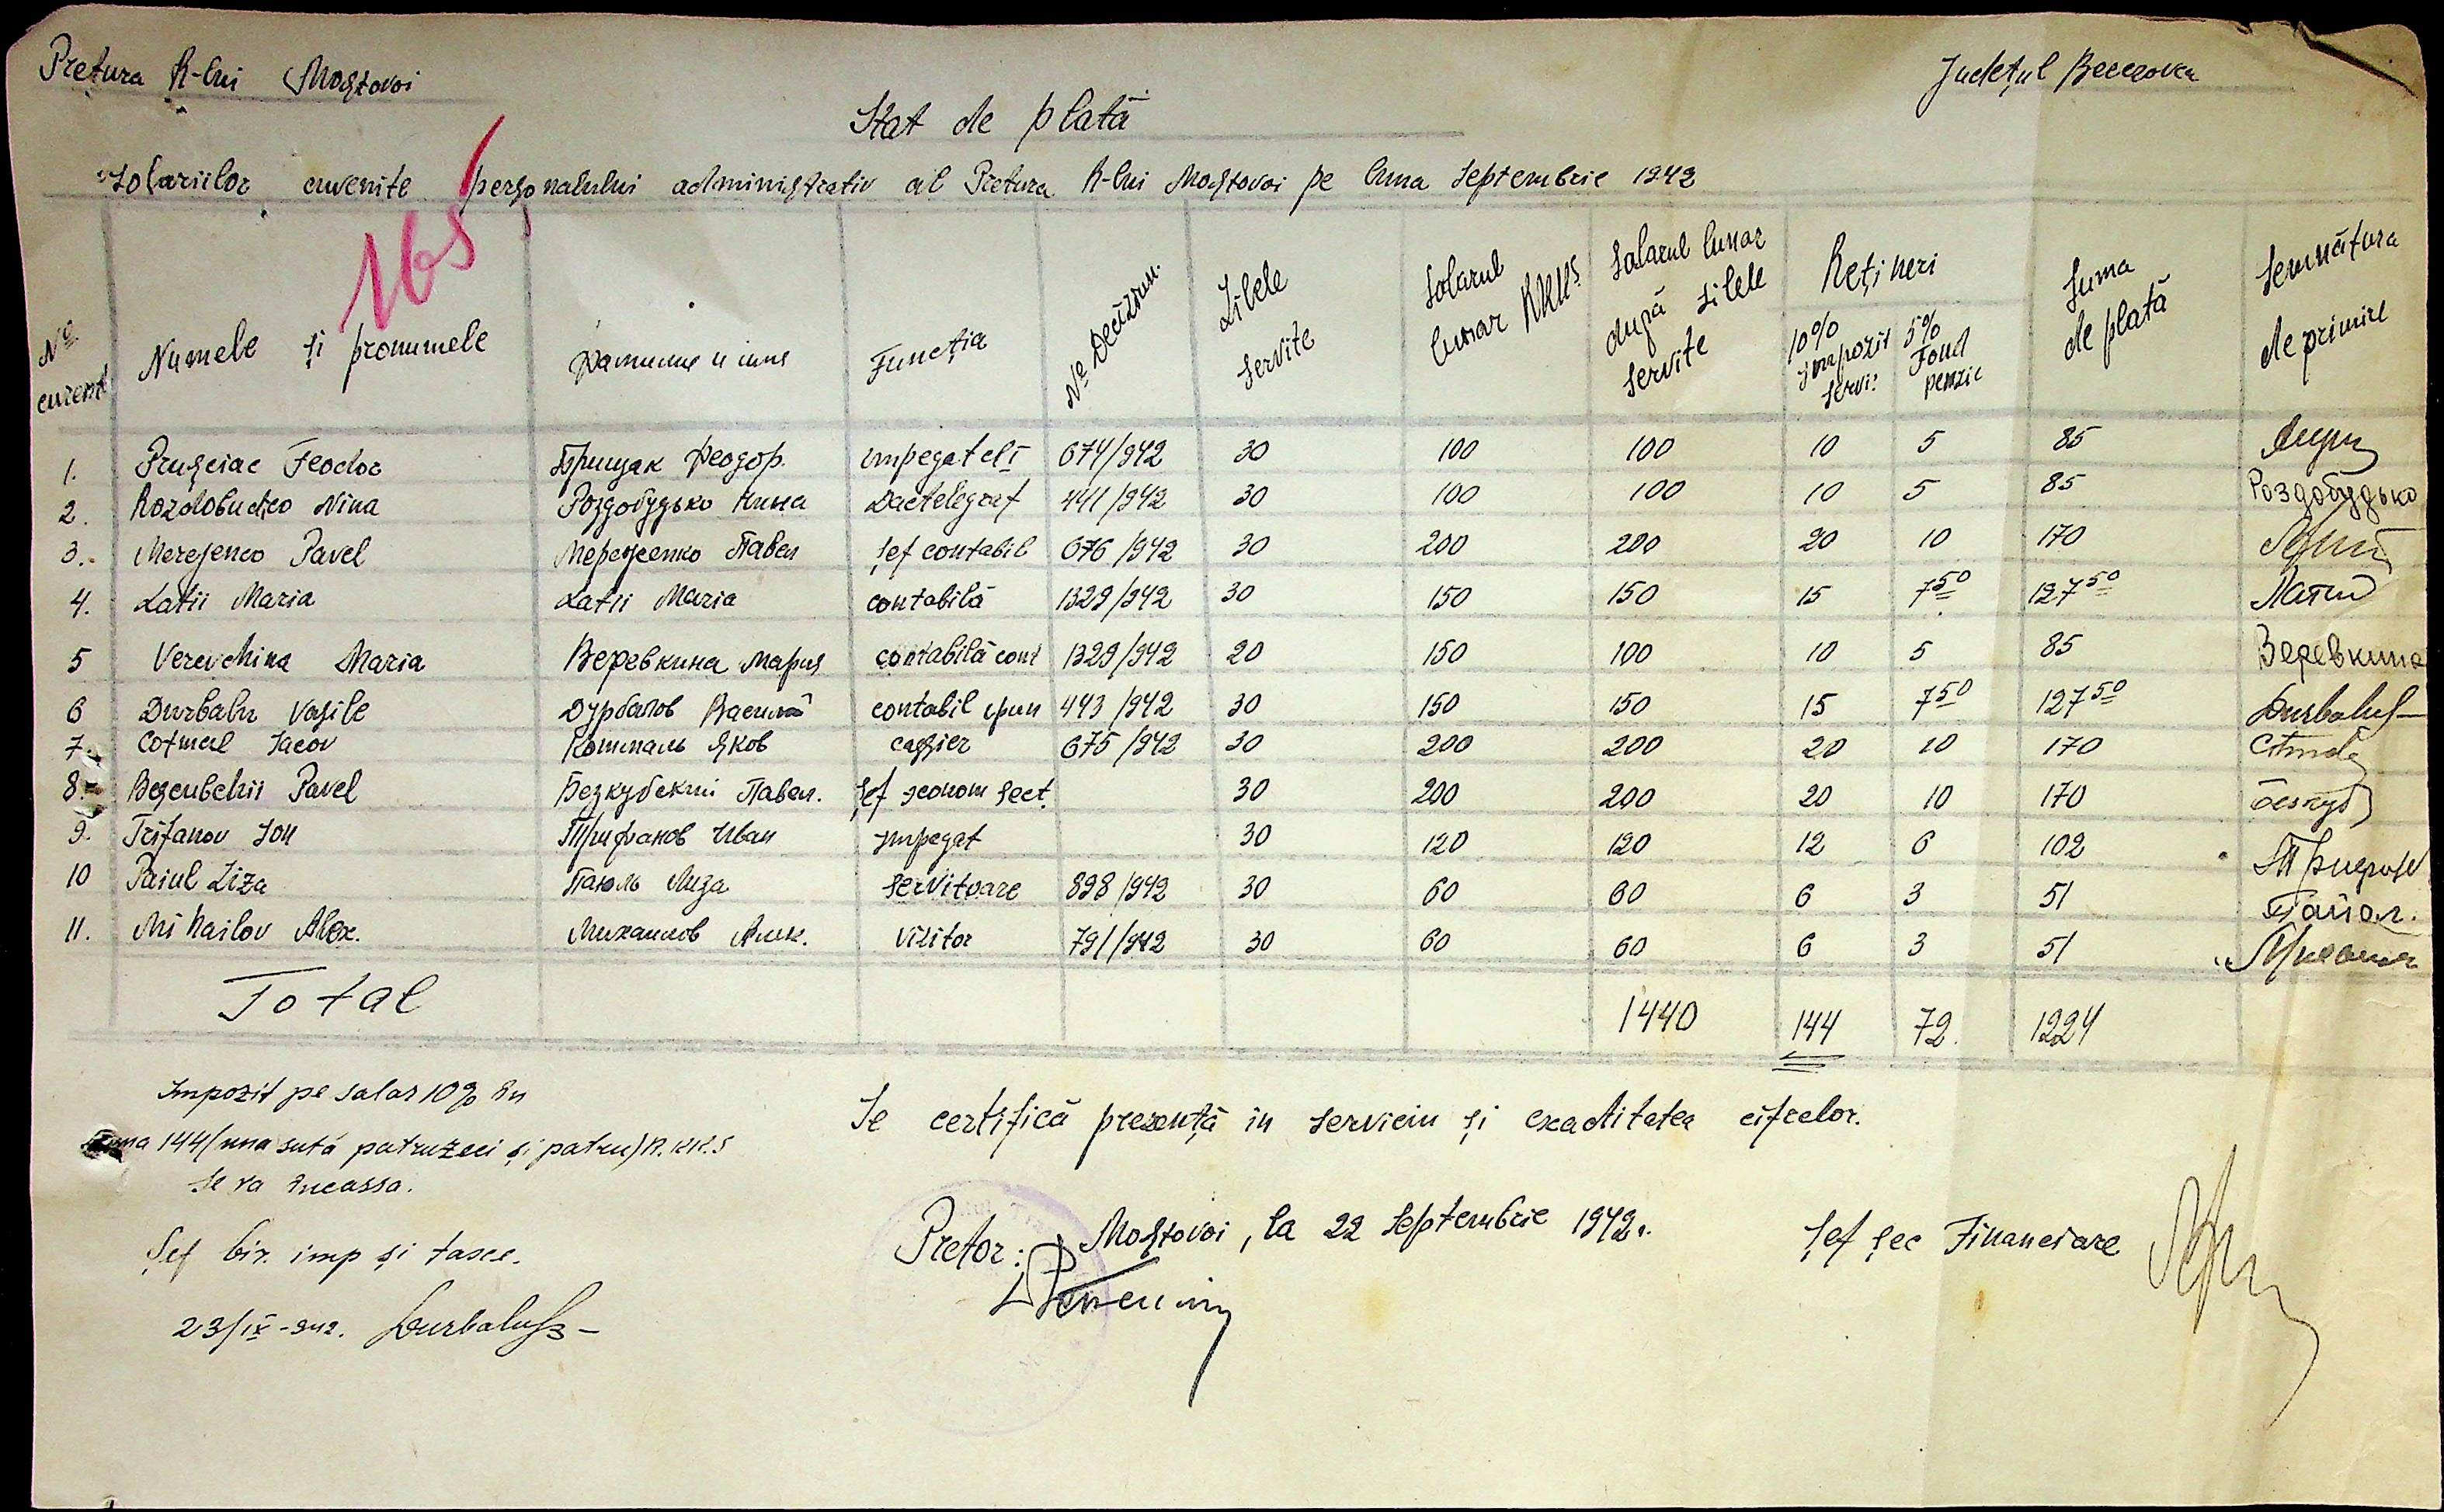 Pretura R-lui Mostovoi
Județul Berezovca
Stat de plată
salariilor cuvenite personalului administrativ al Pretura R-lui Mostovoi pe luna Septembrie 1942
165
№ curent Numele și pronumele Фамилие и имя Funcția № Deciziun. Zilele servite Salarul lunar RKKS Salarul lunar după zilele servite Rețineri 10% impozit servi: 5% Fond penzie Suma de plată Semnătura de primire
1. Prusciac Feodor Прищак Феодор. impegat cl I 674/942 30 100 100 10 5 85
2. Rozdobudco Nina Роздобудько Нина Dactelegraf 441/942 30 100 100 10 5 85 Роздобудько
3. Merejenco Pavel Мереженко Павел șef contabil 676/942 30 200 200 20 10 170
4. Latii Maria Latii Maria contabilă 1329/942 30 150 150 15 7 50 127 50 Латий
5 Verevchina Maria Веревкина Мария contabilă cont 1329/942 20 150 100 10 5 85 Веревкина
6 Durbalu Vasile Дурбалов Василий contabil фин 443/942 30 150 150 15 7 50 127 50 Durbaluf
7. Cotmal Iacov Котмаль Яков cassier 675/942 30 200 200 20 10 170
8. Bezcubchii Pavel Безкубский Павел. șef econom sect. 30 200 200 20 10 170
9. Trifanov Ion Трифанов Иван impegat 30 120 120 12 6 102
10 Paiul Liza Паюль Лиза servitoare 898/942 30 60 60 6 3 51
11. Mihailov Alex. Михаилов Алек. vizitor 791/942 30 60 60 6 3 51
Total 1440 144 72. 1224
Impozit pe salar 10% în
suma 144 (una sută patruzeci și patru) R.KK.S
se va încassa.
Șef bir. imp și taxe.
23/IX-942. Durbaluf
Se certifică prezență în serviciu și exactitatea cifrelor.
Mostovoi, la 22 Septembrie 1942.
Pretor:
Șef sec Financiare